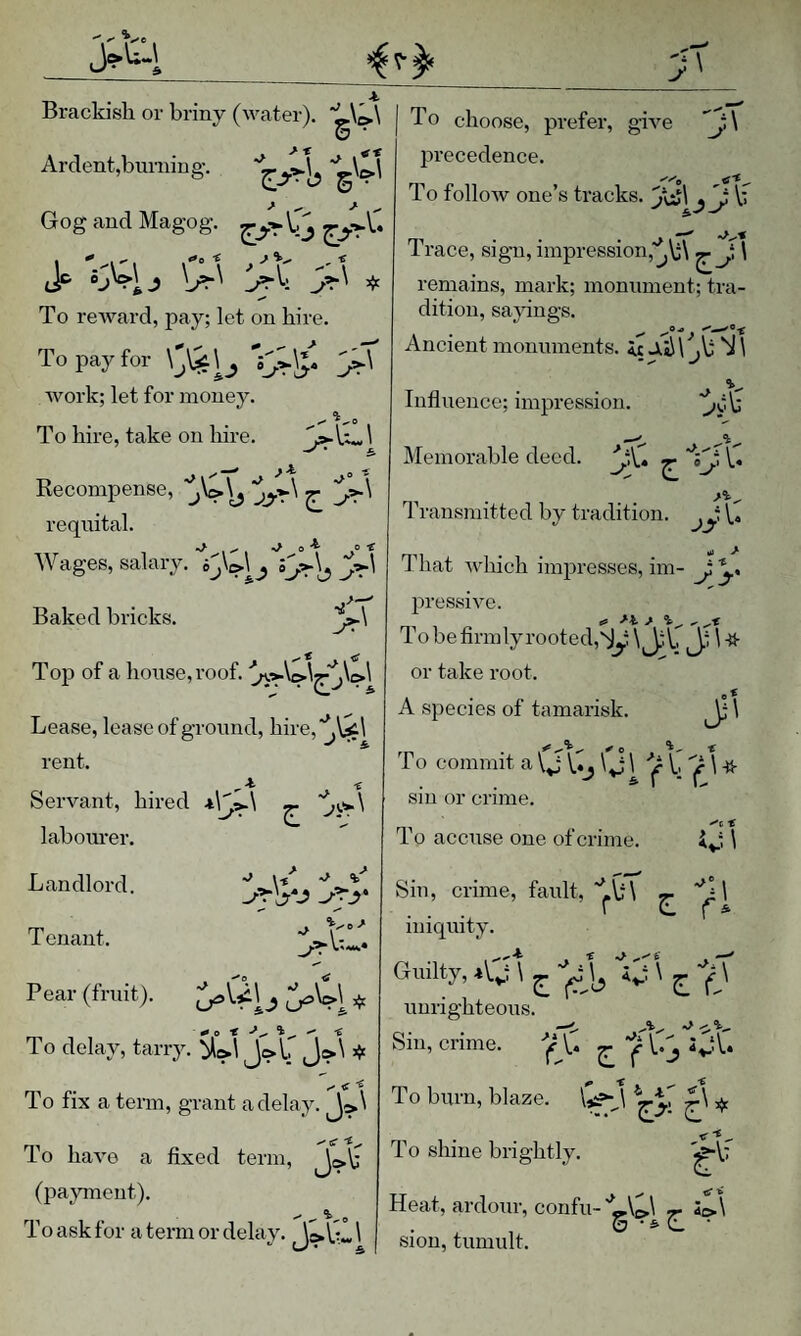 آثر ﴿٣﴾ استأجل
To choose, prefer, give آثَرَ
precedence.
To follow one's tracks. تَأَثَّرَ
Trace, sign, impression, أَثَر ج آثَار
remains, mark; monument; tra-
dition, sayings.
Ancient monuments. الآثَار
Influence; impression. تَأْثِير
Memorable deed. مَأْثَرَة ج مَآثِر
Transmitted by tradition. مَأْثُور
That which impresses, im- مُؤَثِّر
pressive.
To be firmly rooted, * أَثَلَ يَأْثُلُ أُثُولًا
or take root.
A species of tamarisk. أَثْل
To commit a * أَثِمَ يَأْثَمُ إِثْمًا وَمَأْثَمًا
sin or crime.
To accuse one of crime. أَثَّمَ
Sin, crime, fault, إِثْم ج آثَام
iniquity.
Guilty, آثِم ج أَثَمَة وَأَثِيم ج أُثَمَاء
unrighteous.
Sin, crime. مَأْثَمَة وَمَأْثَم ج مَآثِم
To burn, blaze. * أَجَّ يَؤُجُّ أَجِيجًا
To shine brightly. تَأَجَّجَ
Heat, ardour, confu- أَجَّة ج إِجَاج
sion, tumult.
Brackish or briny (water). أُجَاج
Ardent, burning. أَجَّاج وَأَجُوج
Gog and Magog. يَأْجُوج وَمَأْجُوج
* أَجَرَ يَأْجُرُ أَجْرًا وَإِجَارَةً على
To reward, pay; let on hire.
To pay for آجَرَ مُؤَاجَرَةً وَإِيجَارًا
work; let for money.
To hire, take on hire. إِسْتَأْجَرَ
Recompense, أَجْر ج أُجُور وَآجَار
requital.
Wages, salary. أَجْر وَأُجْرَة وَإِجَارَة
Baked bricks. آجُرّ
Top of a house, roof. إِجَّار ج أَجَاجِير
Lease, lease of ground, hire, إِيجَار
rent.
Servant, hired أَجِير ج أُجَرَاء
labourer.
Landlord. مُؤْجِر وَمُؤَاجِر
Tenant. مُسْتَأْجِر
Pear (fruit). * إِجَّاص وَإِنْجَاص
To delay, tarry. * أَجِلَ يَأْجَلُ أَجْلًا
To fix a term, grant a delay. أَجَّلَ
To have a fixed term, تَأَجَّلَ
(payment).
To ask for a term or delay. إِسْتَأْجَلَ